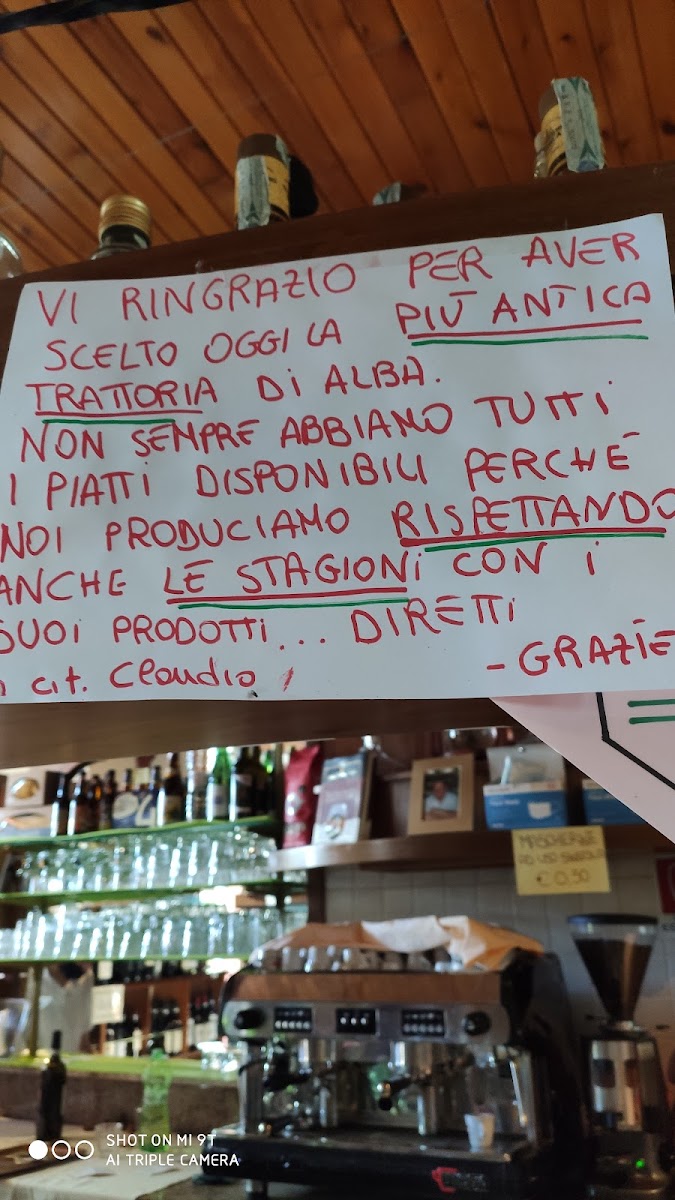 VI RINGRAZIO PER AVER
SCELTO OGGI LA PIÙ ANTICA
TRATTORIA DI ALBA.
NON SEMPRE ABBIAMO TUTTI
I PIATTI DISPONIBILI PERCHÉ
NOI PRODUCIAMO RISPETTANDO
ANCHE LE STAGIONI CON I
SUOI PRODOTTI... DIRETTI
cit. Claudio
- GRAZIE
MASCHERINE
AD USO SINGOLO
€ 0,50
SHOT ON MI 9T
AI TRIPLE CAMERA